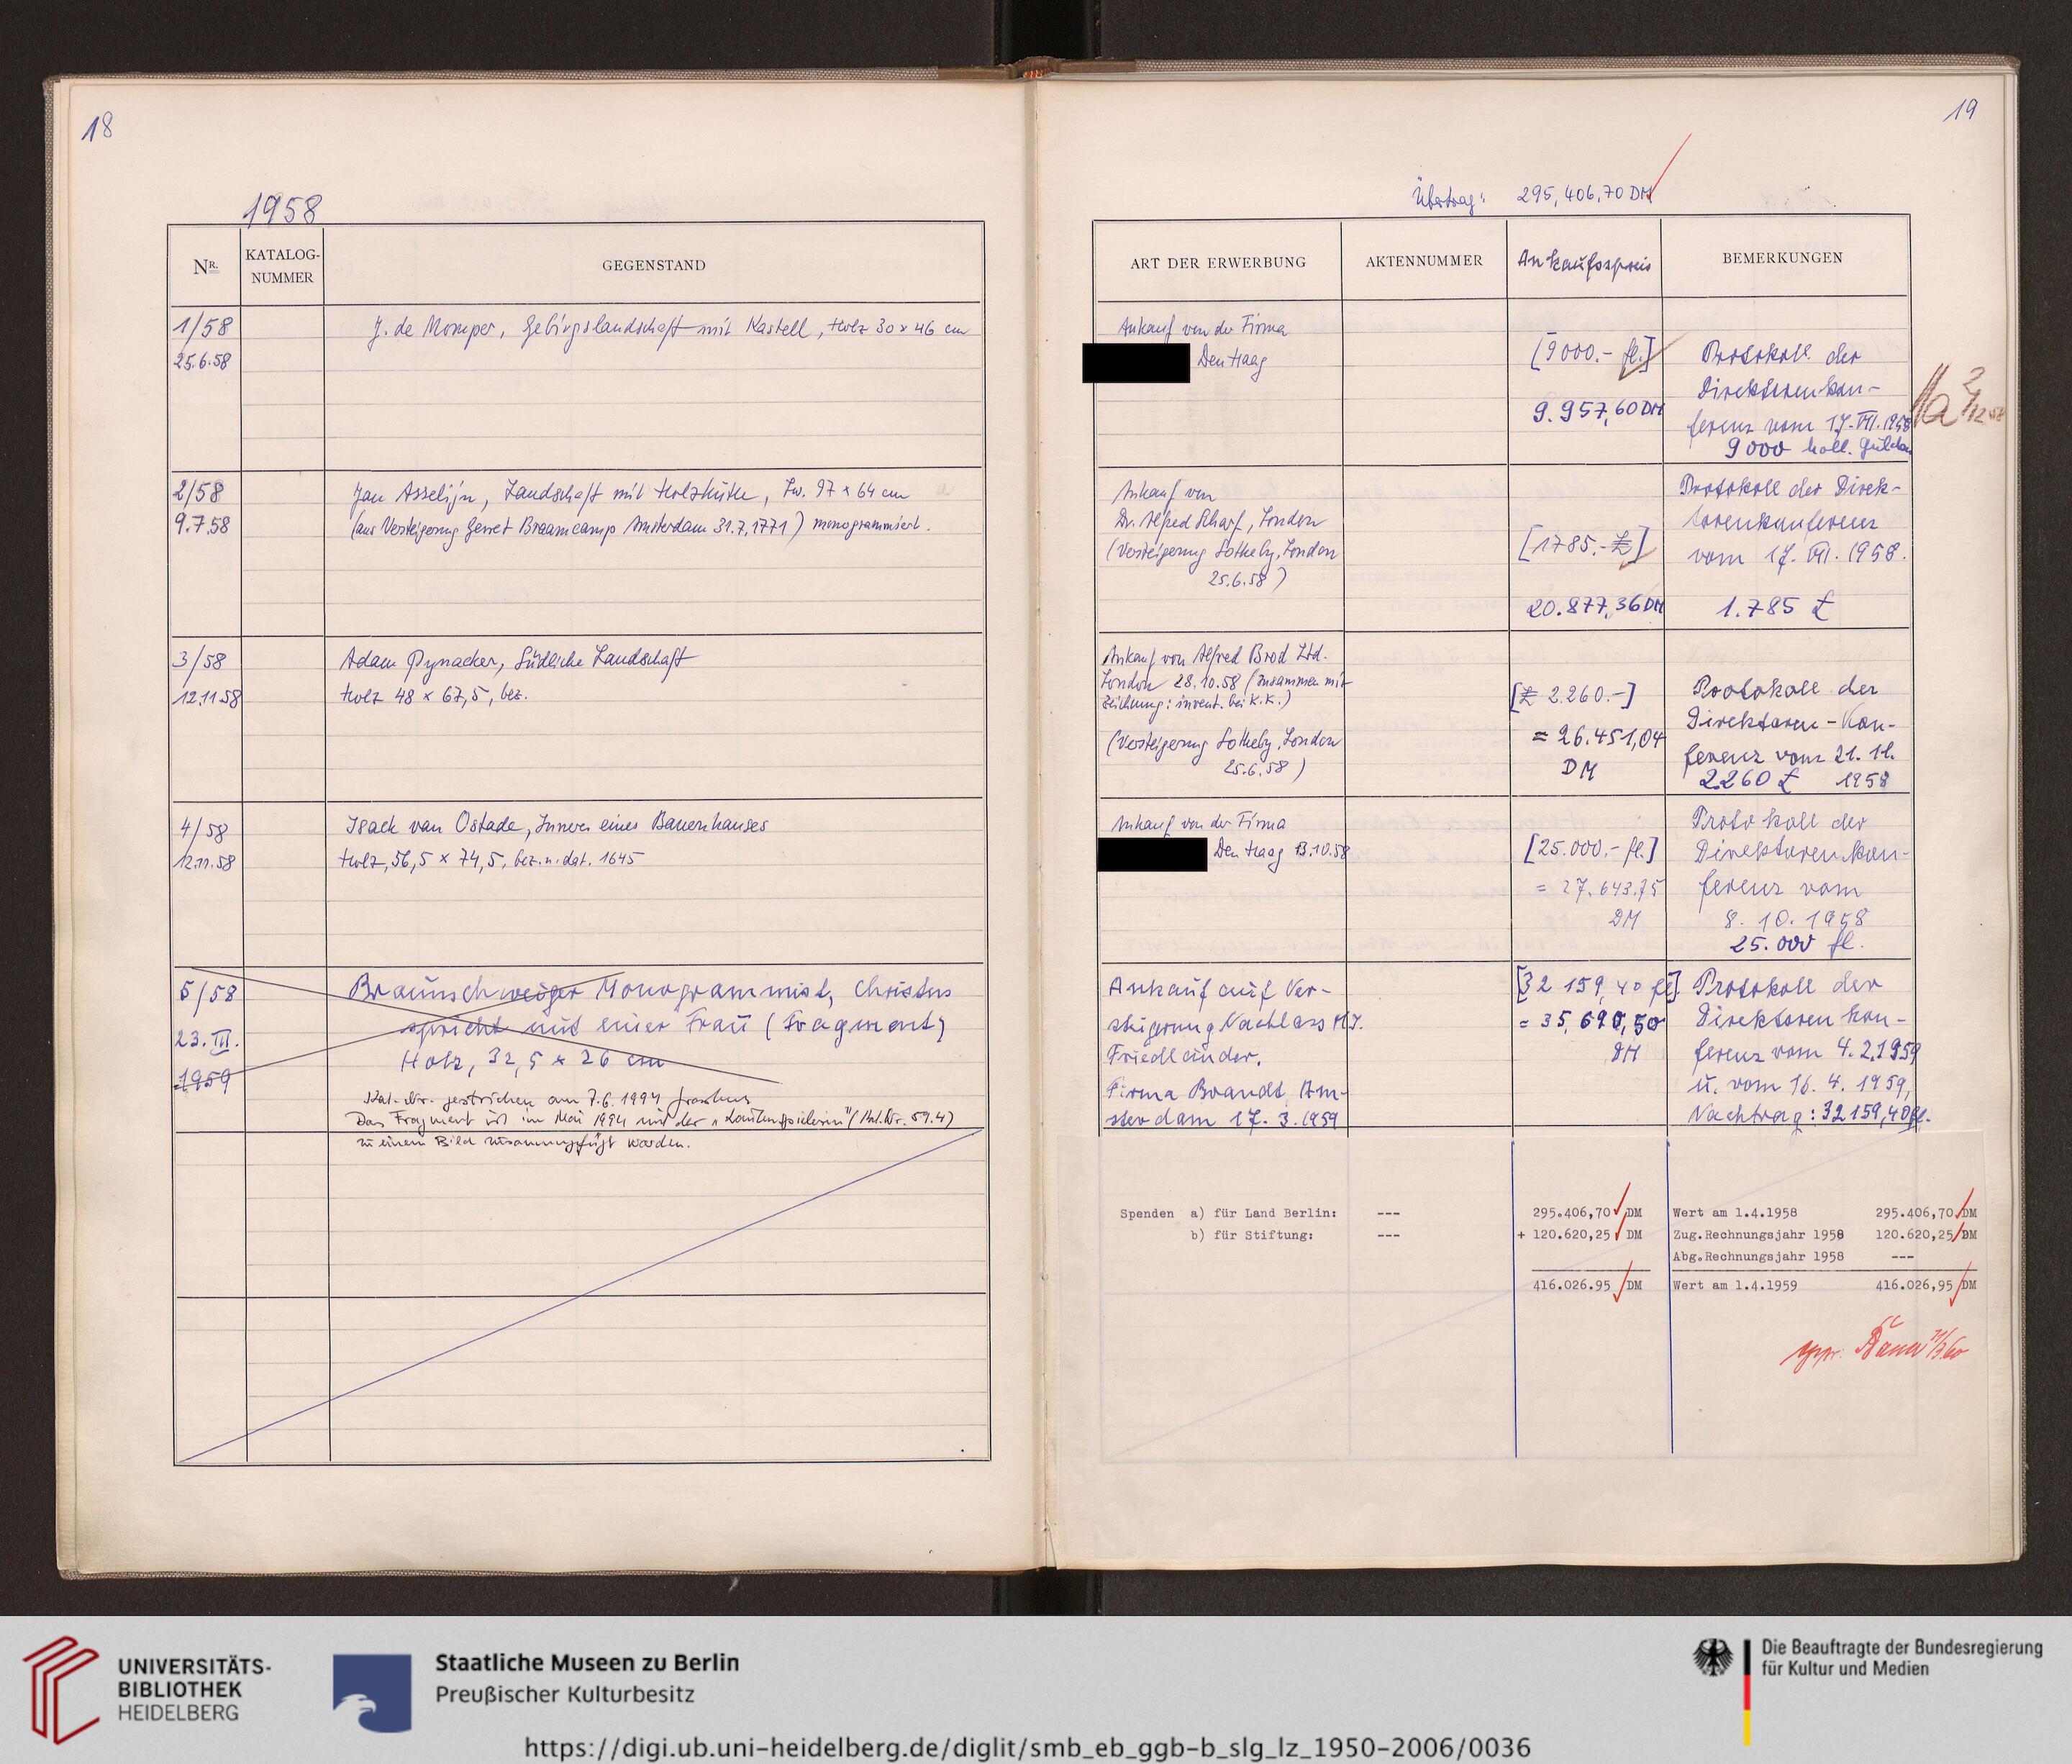 18
1958
NR.
KATALOG-
NUMMER
GEGENSTAND
1/58
25.6.58
J. de Momper, Gebirgslandschaft mit Kastell, Holz 30 x 46 cm
2/58
9.7.58
Jan Asselijn, Landschaft mit Holzhütte, Lw. 97 x 64 cm
(aus Versteigerung Gerret Braamcamp Amsterdam 31.7.1771) monogrammiert.
3/58
12.11.58
Adam Pynacker, Südliche Landschaft
Holz 48 x 67,5, bez.
4/58
12.11.58
Isack van Ostade, Inneres eines Bauernhauses
Holz, 56,5 x 74,5, bez. u. dat. 1645
5/58
23. III.
1959
Braunschweiger Monogrammist, Christus
spricht mit einer Frau (Fragment)
Holz, 32,5 x 26 cm
Kat.-Nr. gestrichen am 7.6.1994
Das Fragment ist im Mai 1994 mit der „Lautenspielerin" (Kat.Nr. 59.4)
zu einem Bild zusammengefügt worden.
19
Übertrag: 295,406,70 DM
ART DER ERWERBUNG
AKTENNUMMER
Ankaufspreis
BEMERKUNGEN
Ankauf von der Firma
Den Haag
[9000.- fl.]
9.957,60 DM
Protokoll der
Direktorenkon-
ferenz vom 17. VII. 1958
9000 holl. Gulden
Ankauf von
Dr. Alfred Scharf, London
(Versteigerung Sotheby, London
25.6.58)
[1785.- £]
20.877,36 DM
Protokoll der Direk-
torenkonferenz
vom 17. VII. 1958.
1.785 £
Ankauf von Alfred Brod Ltd.
London 28.10.58 (zusammen mit
Zeichnung: invent. bei K.K.)
(Versteigerung Sotheby, London
25.6.58)
[£ 2.260.-]
= 26.451,04
DM
Protokoll der
Direktoren-Kon-
ferenz vom 21. 11.
2260 £ 1958
Ankauf von der Firma
Den Haag 13.10.58
[25.000.- fl.]
= 27.643,75
DM
Protokoll der
Direktorenkon-
ferenz vom
8. 10. 1958
25.000 fl.
Ankauf auf Ver-
steigerung Nachlass M.J.
Friedländer.
Firma Brandt, Am-
sterdam 17. 3. 1959
[32 159,40 fl.]
= 35,690,50
DM
Protokoll der
Direktorenkon-
ferenz vom 4.2.1959
u. vom 16. 4. 1959,
Nachtrag: 32 159,40 fl.
Spenden a) für Land Berlin: ---
b) für Stiftung: ---
295.406,70 DM
+ 120.620,25 DM
416.026.95 DM
Wert am 1.4.1958 295.406,70 DM
Zug.Rechnungsjahr 1958 120.620,25 DM
Abg.Rechnungsjahr 1958 ---
Wert am 1.4.1959 416.026,95 DM
UNIVERSITÄTS-
BIBLIOTHEK
HEIDELBERG
Staatliche Museen zu Berlin
Preußischer Kulturbesitz
Die Beauftragte der Bundesregierung
für Kultur und Medien
https://digi.ub.uni-heidelberg.de/diglit/smb_eb_ggb-b_slg_lz_1950-2006/0036